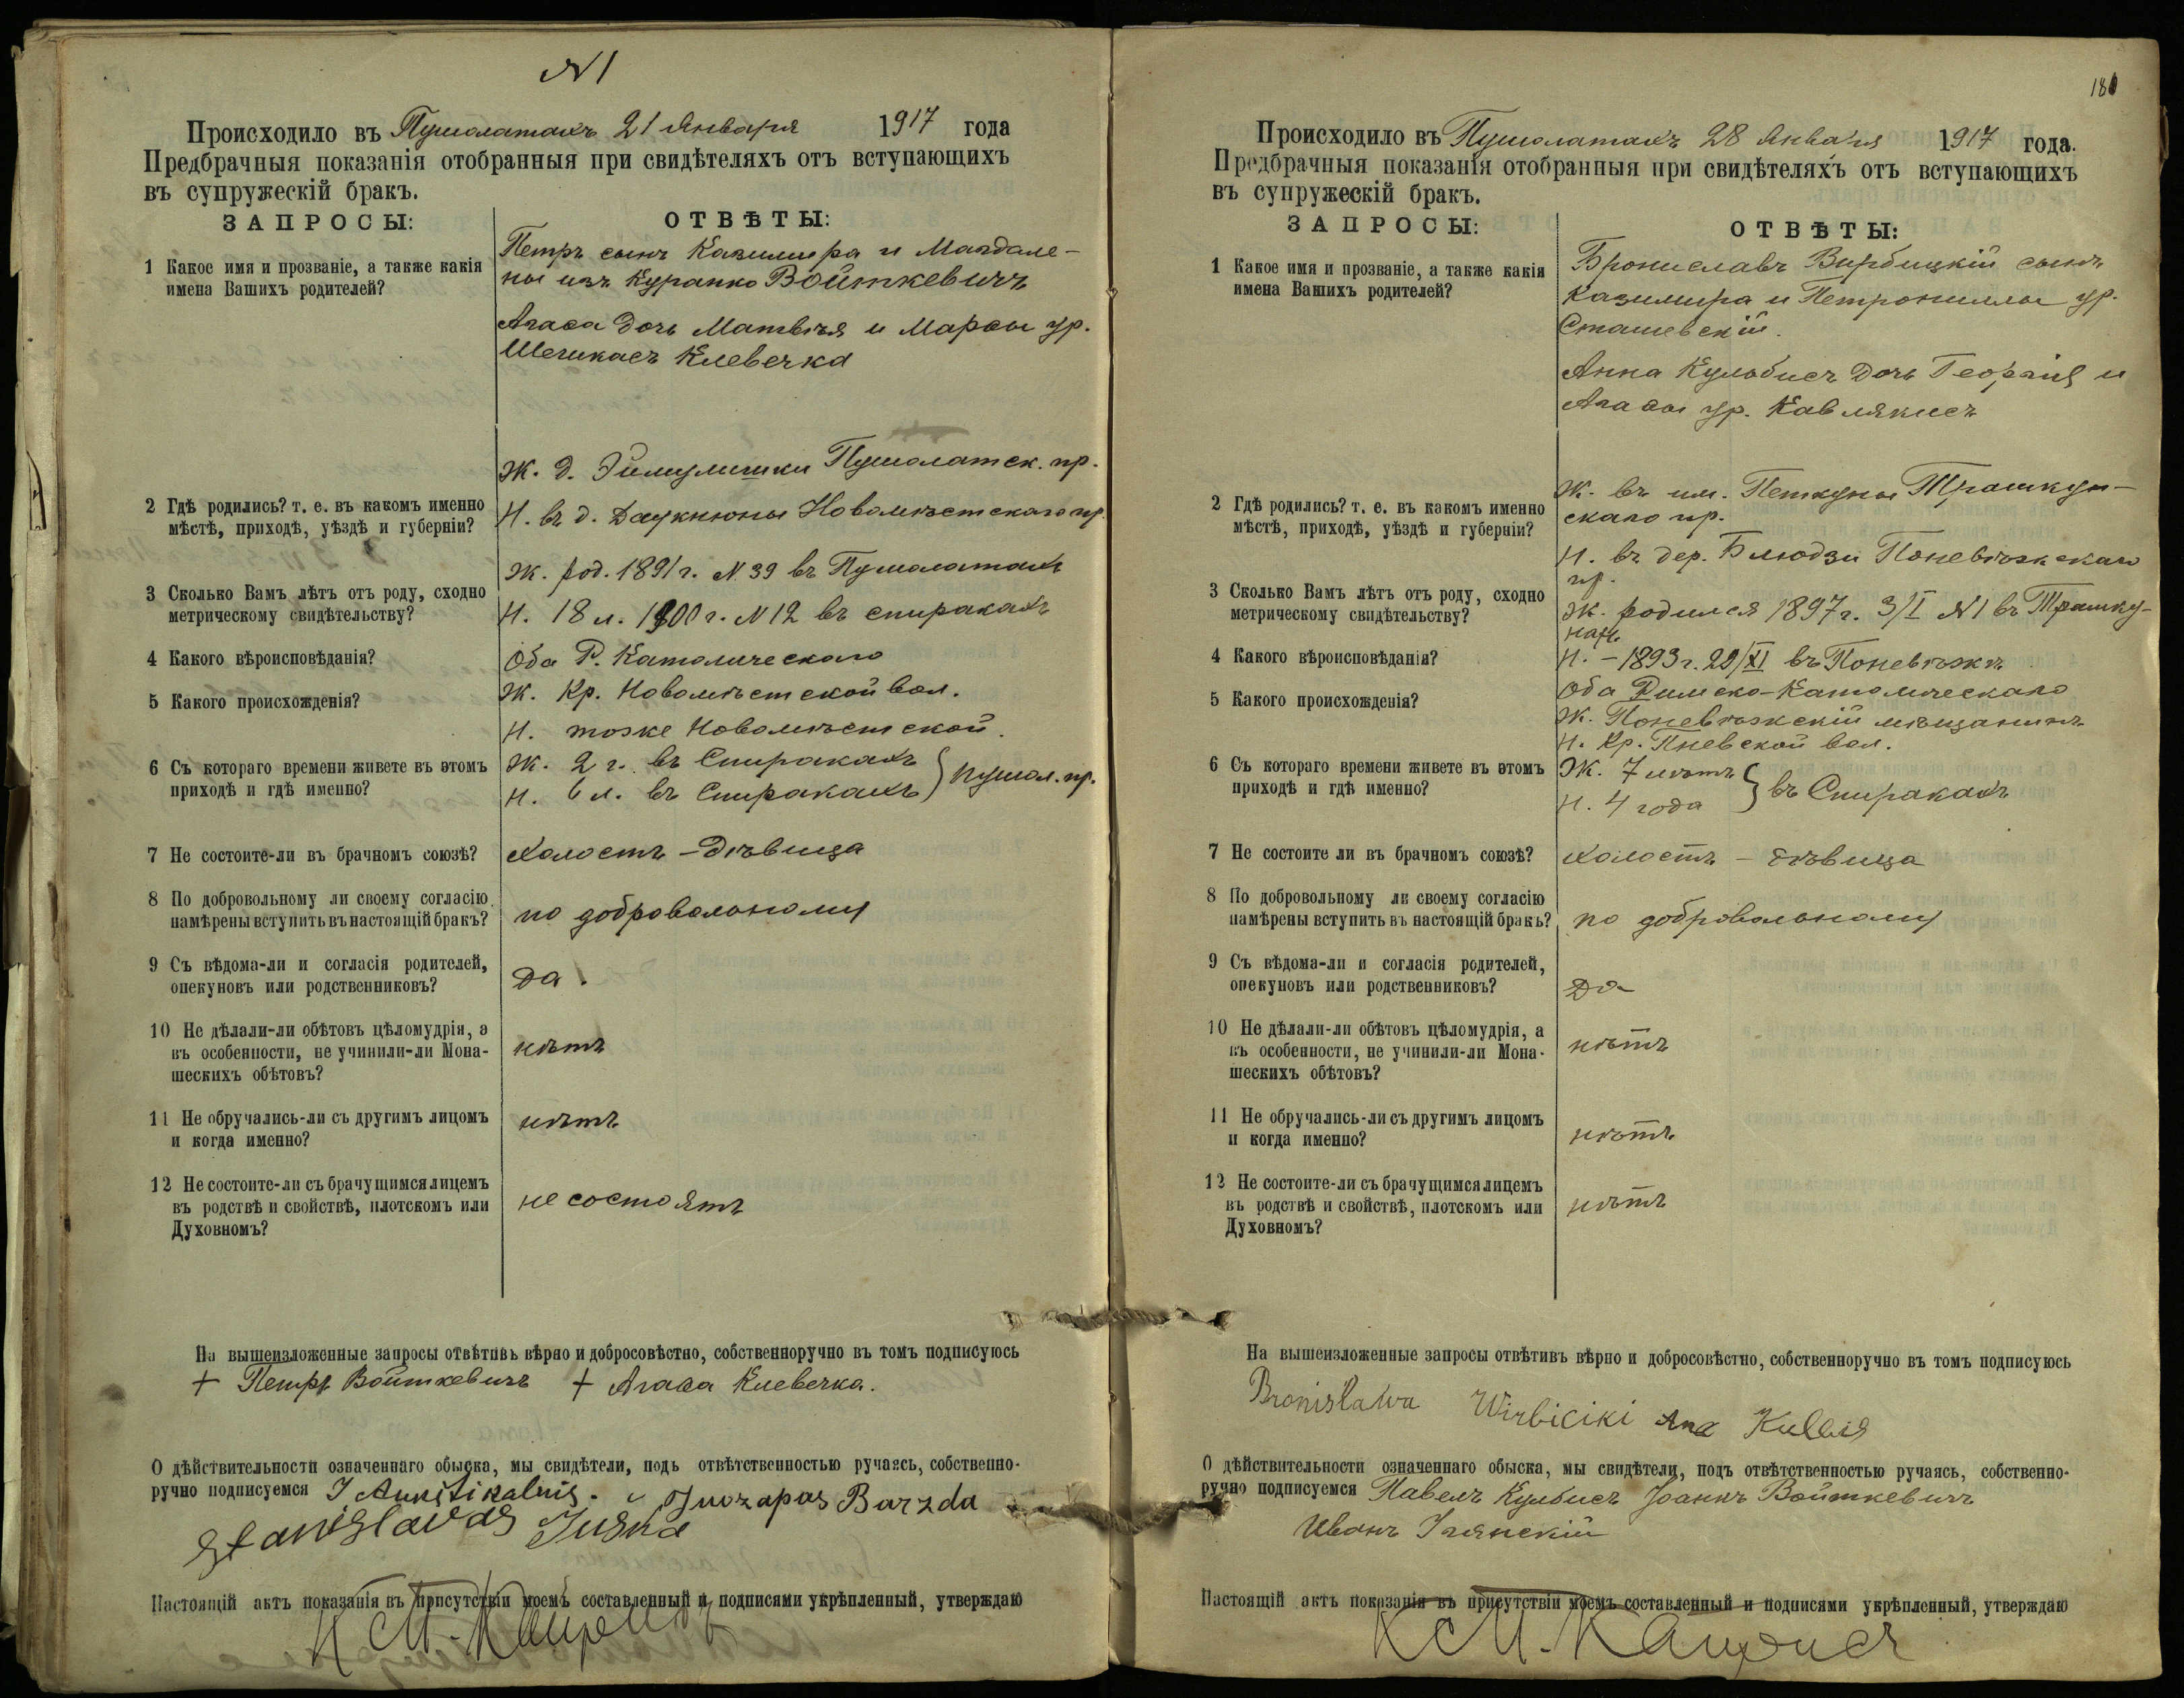 N 1
Происходило въ Пушолатахъ 21 Января 1917 года
Предбрачныя показанія отобранныя при свидѣтеляхъ отъ вступающихъ
въ супружескій бракъ.
ЗАПРОСЫ:
ОТВѢТЫ:
1 Какое имя и прозваніе, а также какія
имена Вашихъ родителей?
Петръ сынъ Казимира и Магдале-
ны изъ Куранко Войткевичъ
Агаѳа дочь Матвѣя и Марѳы ур.
Шешкасъ Клевечка
2 Гдѣ родились? т. е. въ какомъ именно
мѣстѣ, приходѣ, уѣздѣ и губерніи?
Ж. д. Эймулишки Пушолатск. пр.
Н. въ д. Даукнюны Новомѣстскаго пр.
3 Сколько Вамъ лѣтъ отъ роду, сходно
метрическому свидѣтельству?
Ж. род. 1891 г. N 39 въ Пушолатахъ
Н. 18 л. 1900 г. N 12 въ Спиракахъ
4 Какого вѣроисповѣданія?
Оба Р. Католическаго
5 Какого происхожденія?
Ж. Кр. Новомѣстской вол.
Н. тоже Новомѣстской.
6 Съ котораго времени живете въ этомъ
приходѣ и гдѣ именно?
Ж. 2 г. въ Спиракахъ
Н. 6 л. въ Спиракахъ } Пушол. пр.
7 Не состоите-ли въ брачномъ союзѣ?
Холостъ – Дѣвица
8 По добровольному ли своему согласію
намѣрены вступить въ настоящій бракъ?
по добровольному
9 Съ вѣдома-ли и согласія родителей,
опекуновъ или родственниковъ?
Да.
10 Не дѣлали-ли обѣтовъ цѣломудрія, а
въ особенности, не учинили-ли Мона-
шескихъ обѣтовъ?
нѣтъ
11 Не обручались-ли съ другимъ лицомъ
и когда именно?
нѣтъ
12 Не состоите-ли съ брачущимся лицемъ
въ родствѣ и свойствѣ, плотскомъ или
Духовномъ?
не состоятъ
На вышеизложенные запросы отвѣтивъ вѣрно и добросовѣстно, собственноручно въ томъ подписуюсь
+ Петръ Войткевичъ + Агаѳа Клевечка.
О дѣйствительности означеннаго обыска, мы свидѣтели, подъ отвѣтственностью ручаясь, собственно-
ручно подписуемся I Aukštikalnis. Juozapas Barzda
Stanislavas Juška
Настоящій актъ показанія въ присутствіи моемъ составленный и подписями укрѣпленный, утверждаю
180
Происходило въ Пушолатахъ 28 Января 1917 года.
Предбрачныя показанія отобранныя при свидѣтеляхъ отъ вступающихъ
въ супружескій бракъ.
ЗАПРОСЫ:
ОТВѢТЫ:
1 Какое имя и прозваніе, а также какія
имена Вашихъ родителей?
Брониславъ Вирбицкій сынъ
Казимира и Петрониллы ур.
Сташевскій.
Анна Кульбисъ дочь Георгія и
Агаѳы ур. Кавлякисъ
2 Гдѣ родились? т. е. въ какомъ именно
мѣстѣ, приходѣ, уѣздѣ и губерніи?
Ж. въ им. Петкуны Трашкун-
скаго пр.
Н. въ дер. Блюдзи Поневѣжскаго
пр.
3 Сколько Вамъ лѣтъ отъ роду, сходно
метрическому свидѣтельству?
Ж. родился 1897 г. 3/I N 1 въ Трашку-
нах.
Н. – 1893 г. 29/XI въ Поневѣжѣ
4 Какого вѣроисповѣданія?
Оба Римско-Католическаго
5 Какого происхожденія?
Ж. Поневѣжскій мѣщанинъ
Н. Кр. Пневской вол.
6 Съ котораго времени живете въ этомъ
приходѣ и гдѣ именно?
Ж. 7 лѣтъ
Н. 4 года } въ Спиракахъ
7 Не состоите ли въ брачномъ союзѣ?
Холостъ – дѣвица
8 По добровольному ли своему согласію
намѣрены вступить въ настоящій бракъ?
по добровольному
9 Съ вѣдома-ли и согласія родителей,
опекуновъ или родственниковъ?
Да
10 Не дѣлали-ли обѣтовъ цѣломудрія, а
въ особенности, не учинили-ли Мона-
шескихъ обѣтовъ?
нѣтъ
11 Не обручались-ли съ другимъ лицомъ
и когда именно?
нѣтъ
12 Не состоите-ли съ брачущимся лицемъ
въ родствѣ и свойствѣ, плотскомъ или
Духовномъ?
нѣтъ
На вышеизложенные запросы отвѣтивъ вѣрно и добросовѣстно, собственноручно въ томъ подписуюсь
Bronislawa Wirbiciki Ana Kulbis
О дѣйствительности означеннаго обыска, мы свидѣтели, подъ отвѣтственностью ручаясь, собственно-
ручно подписуемся Павелъ Кулбисъ Іоаннъ Войткевичъ
Иванъ Углянскій
Настоящій актъ показанія въ присутствіи моемъ составленный и подписями укрѣпленный, утверждаю